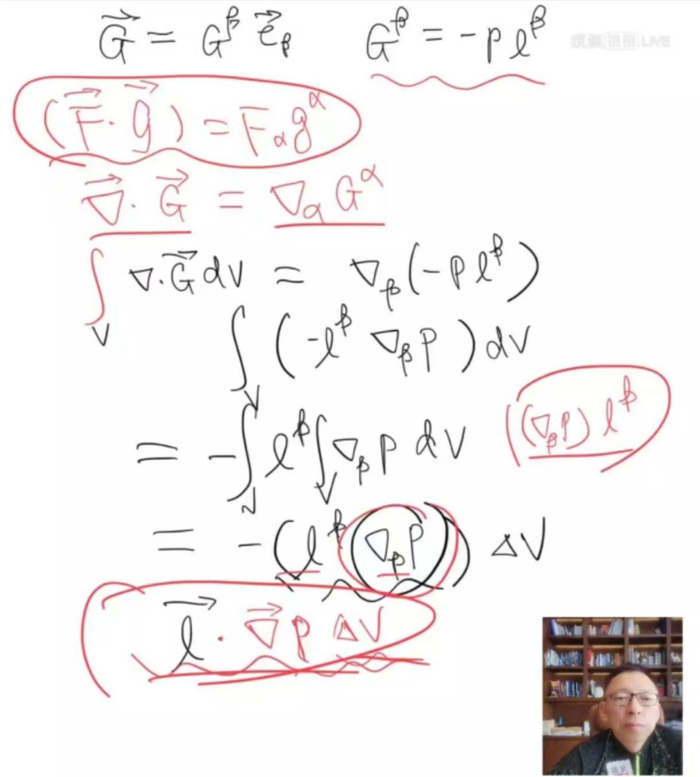 G⃗ = G^β e⃗_β    G^β = -p l^β
搜狐视频 LIVE
(F⃗ · g⃗) = F_α g^α
∇⃗ · G⃗ = ∇_α G^α
∫_V ∇·G⃗ dV = ∇_β(-p l^β)
∫_V (-l^β ∇_β p) dV
= -∫_V l^β ∫_V ∇_β p dV    ((∇_β p) l^β
= -(l^β (∇_β p)) ΔV
l⃗ · ∇⃗ p ΔV